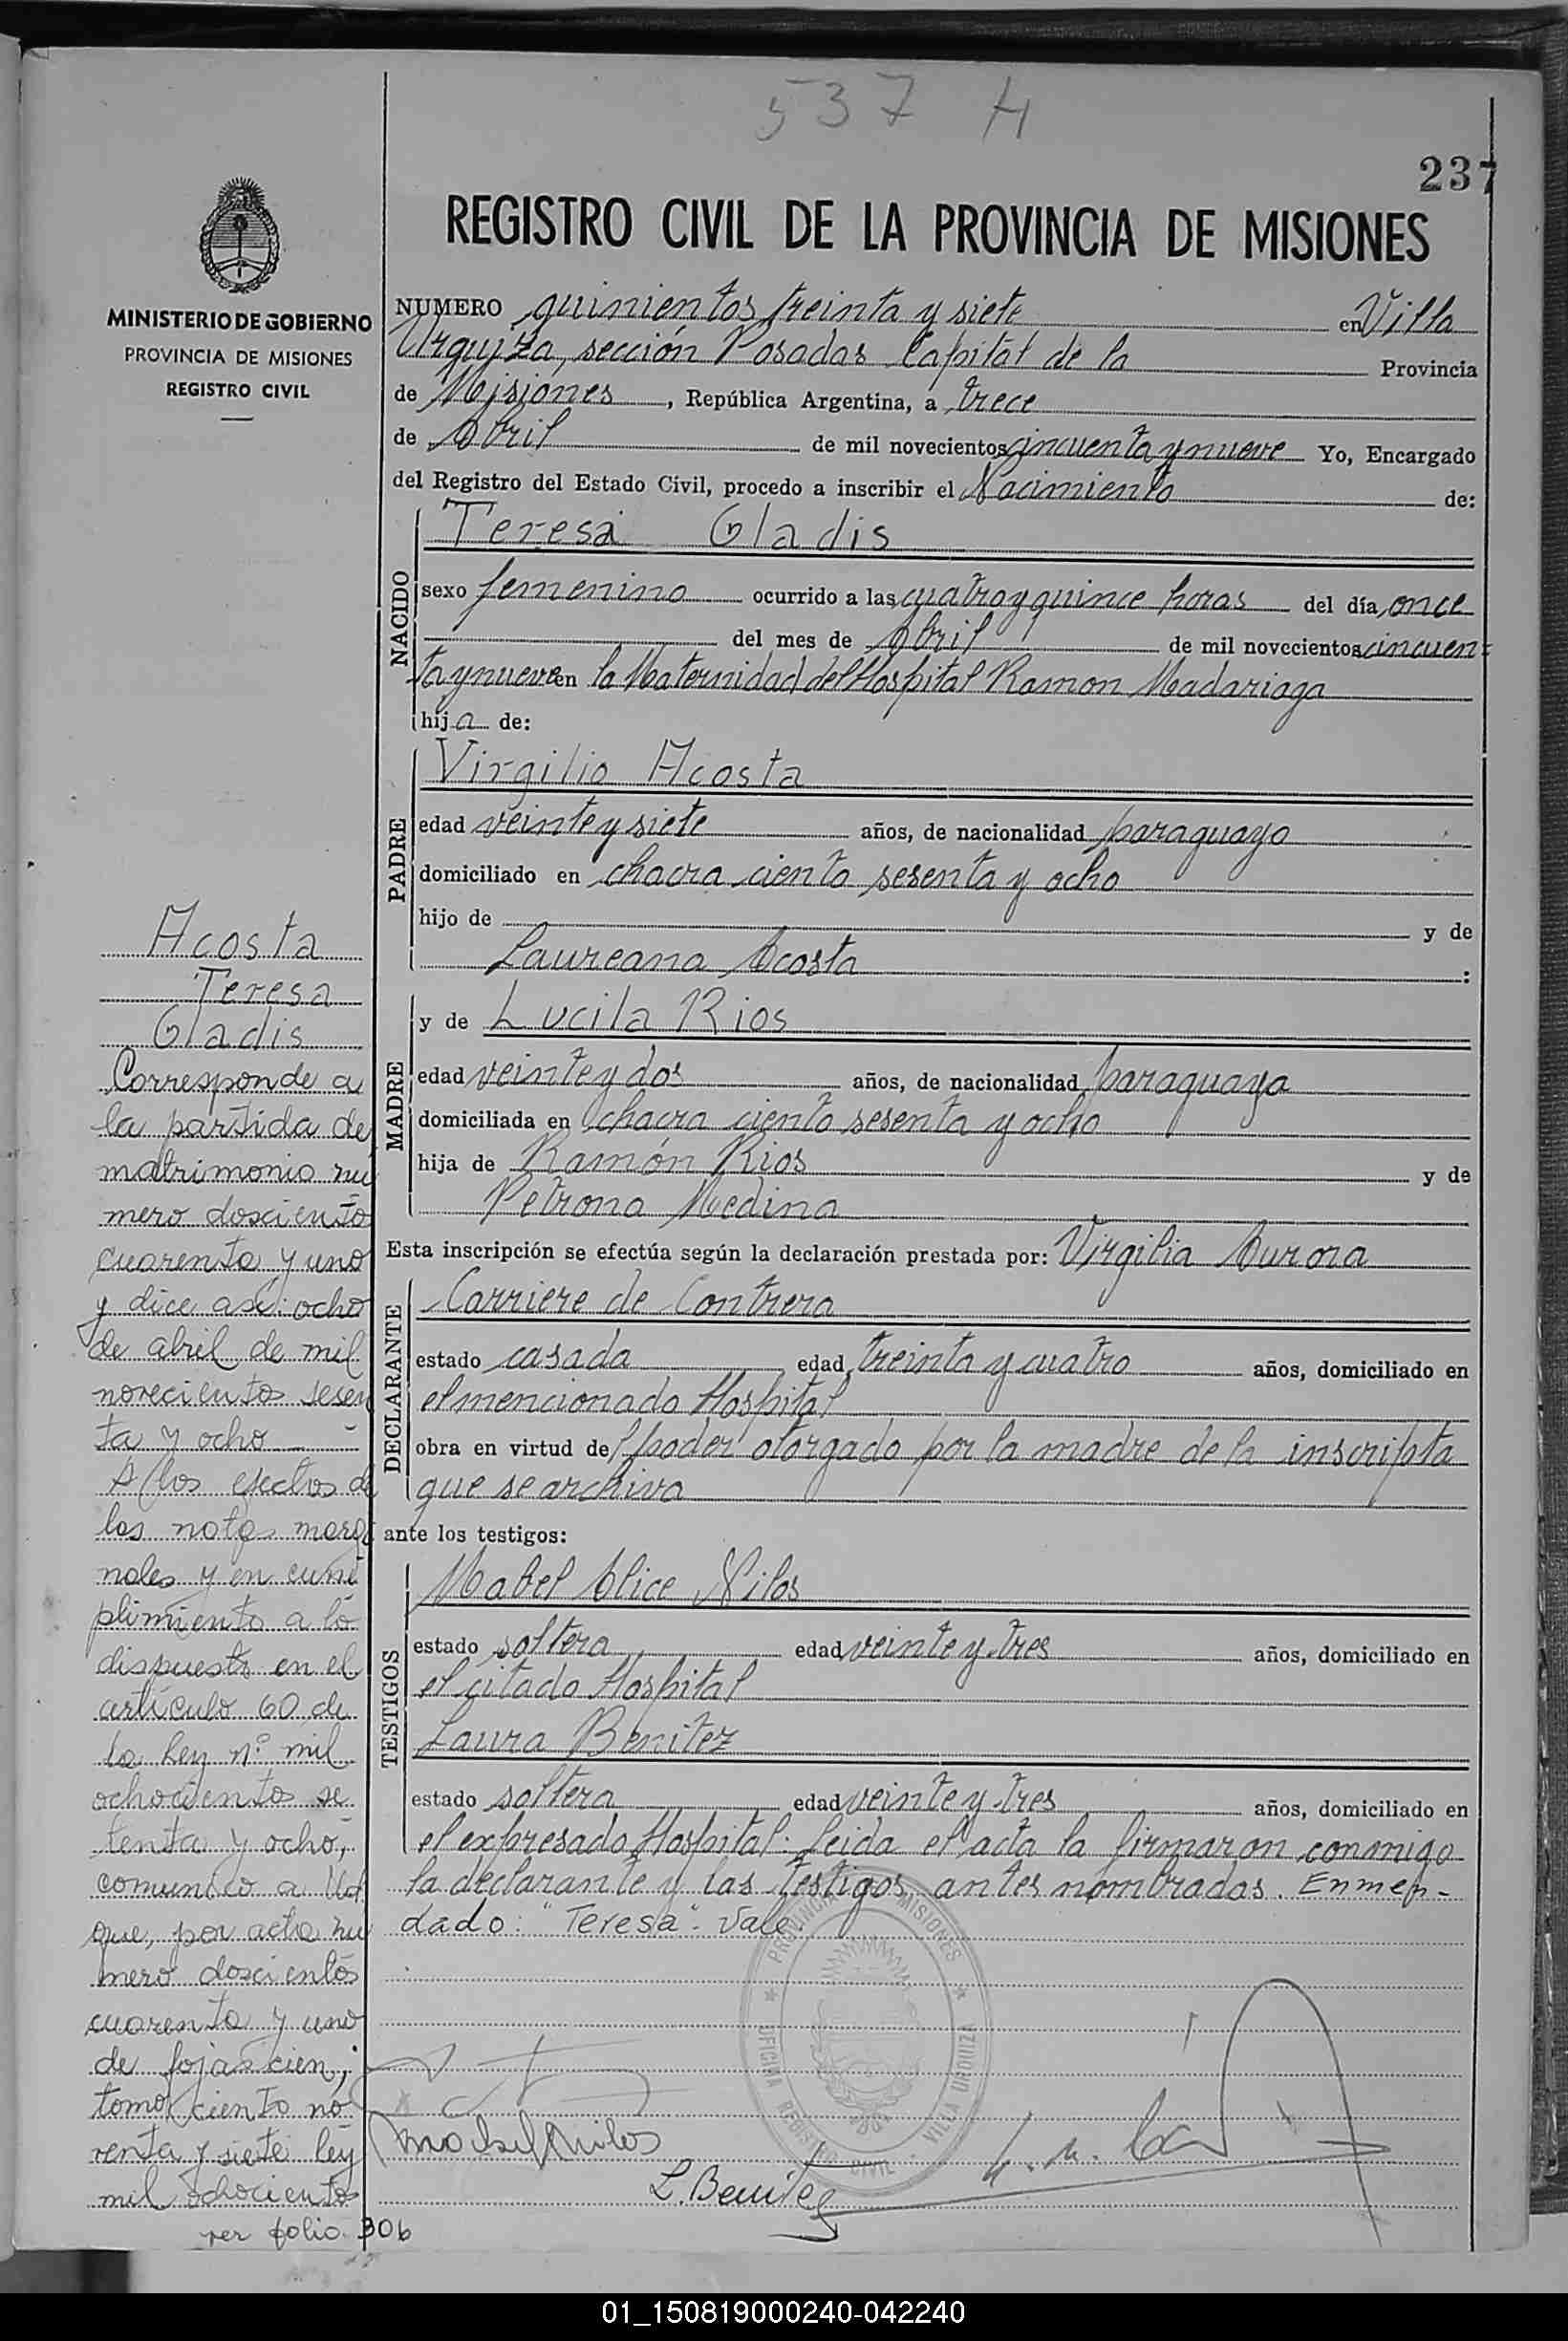 537 A
237
REGISTRO CIVIL DE LA PROVINCIA DE MISIONES
MINISTERIO DE GOBIERNO
PROVINCIA DE MISIONES
REGISTRO CIVIL
NUMERO quinientos treinta y siete en Villa
Urquiza, sección Posadas Capital de la Provincia
de Misiones, República Argentina, a trece
de Abril de mil novecientos cincuenta y nueve Yo, Encargado
del Registro del Estado Civil, procedo a inscribir el Nacimiento de:
NACIDO
Teresa Gladis
sexo femenino ocurrido a las cuatro y quince horas del día once
del mes de Abril de mil novecientos cincuen-
ta y nueve en la Maternidad del Hospital Ramon Madariaga
hija de:
PADRE
Virgilio Acosta
edad veinte y siete años, de nacionalidad paraguayo
domiciliado en chacra ciento sesenta y ocho
hijo de y de
Laureana Acosta :
MADRE
y de Lucila Rios
edad veinte y dos años, de nacionalidad paraguaya
domiciliada en chacra ciento sesenta y ocho
hija de Ramón Rios y de
Petrona Medina
Esta inscripción se efectúa según la declaración prestada por: Virgilia Aurora
DECLARANTE
Carriere de Contrera
estado casada edad treinta y cuatro años, domiciliado en
el mencionado Hospital
obra en virtud del poder otorgado por la madre de la inscripta
que se archiva
ante los testigos:
TESTIGOS
Mabel Alice Nilos
estado soltera edad veinte y tres años, domiciliado en
el citado Hospital
Laura Benitez
estado soltera edad veinte y tres años, domiciliado en
el expresado Hospital. Leida el acta la firmaron conmigo
la declarante y las testigos antes nombradas. Enmen-
dado: "Teresa". Vale.
Acosta
Teresa
Gladis
Corresponde a
la partida de
matrimonio nú
mero doscientos
cuarenta y uno
y dice así: ocho
de abril de mil
novecientos sesen
ta y ocho
A los efectos de
las notas margi
nales y en cum
plimiento a lo
dispuesto en el
artículo 60 de
la Ley n° mil
ochocientos se
tenta y ocho,
comunico a Ud
que, por acta nú
mero doscientos
cuarenta y uno
de fojas cien,
tomo ciento no
venta y siete ley
mil ochocientos
ver folio 306
PROVINCIA MISIONES
OFICINA REGISTRO CIVIL VILLA URQUIZA
Mabel Nilos
L. Benitez
01_150819000240-042240